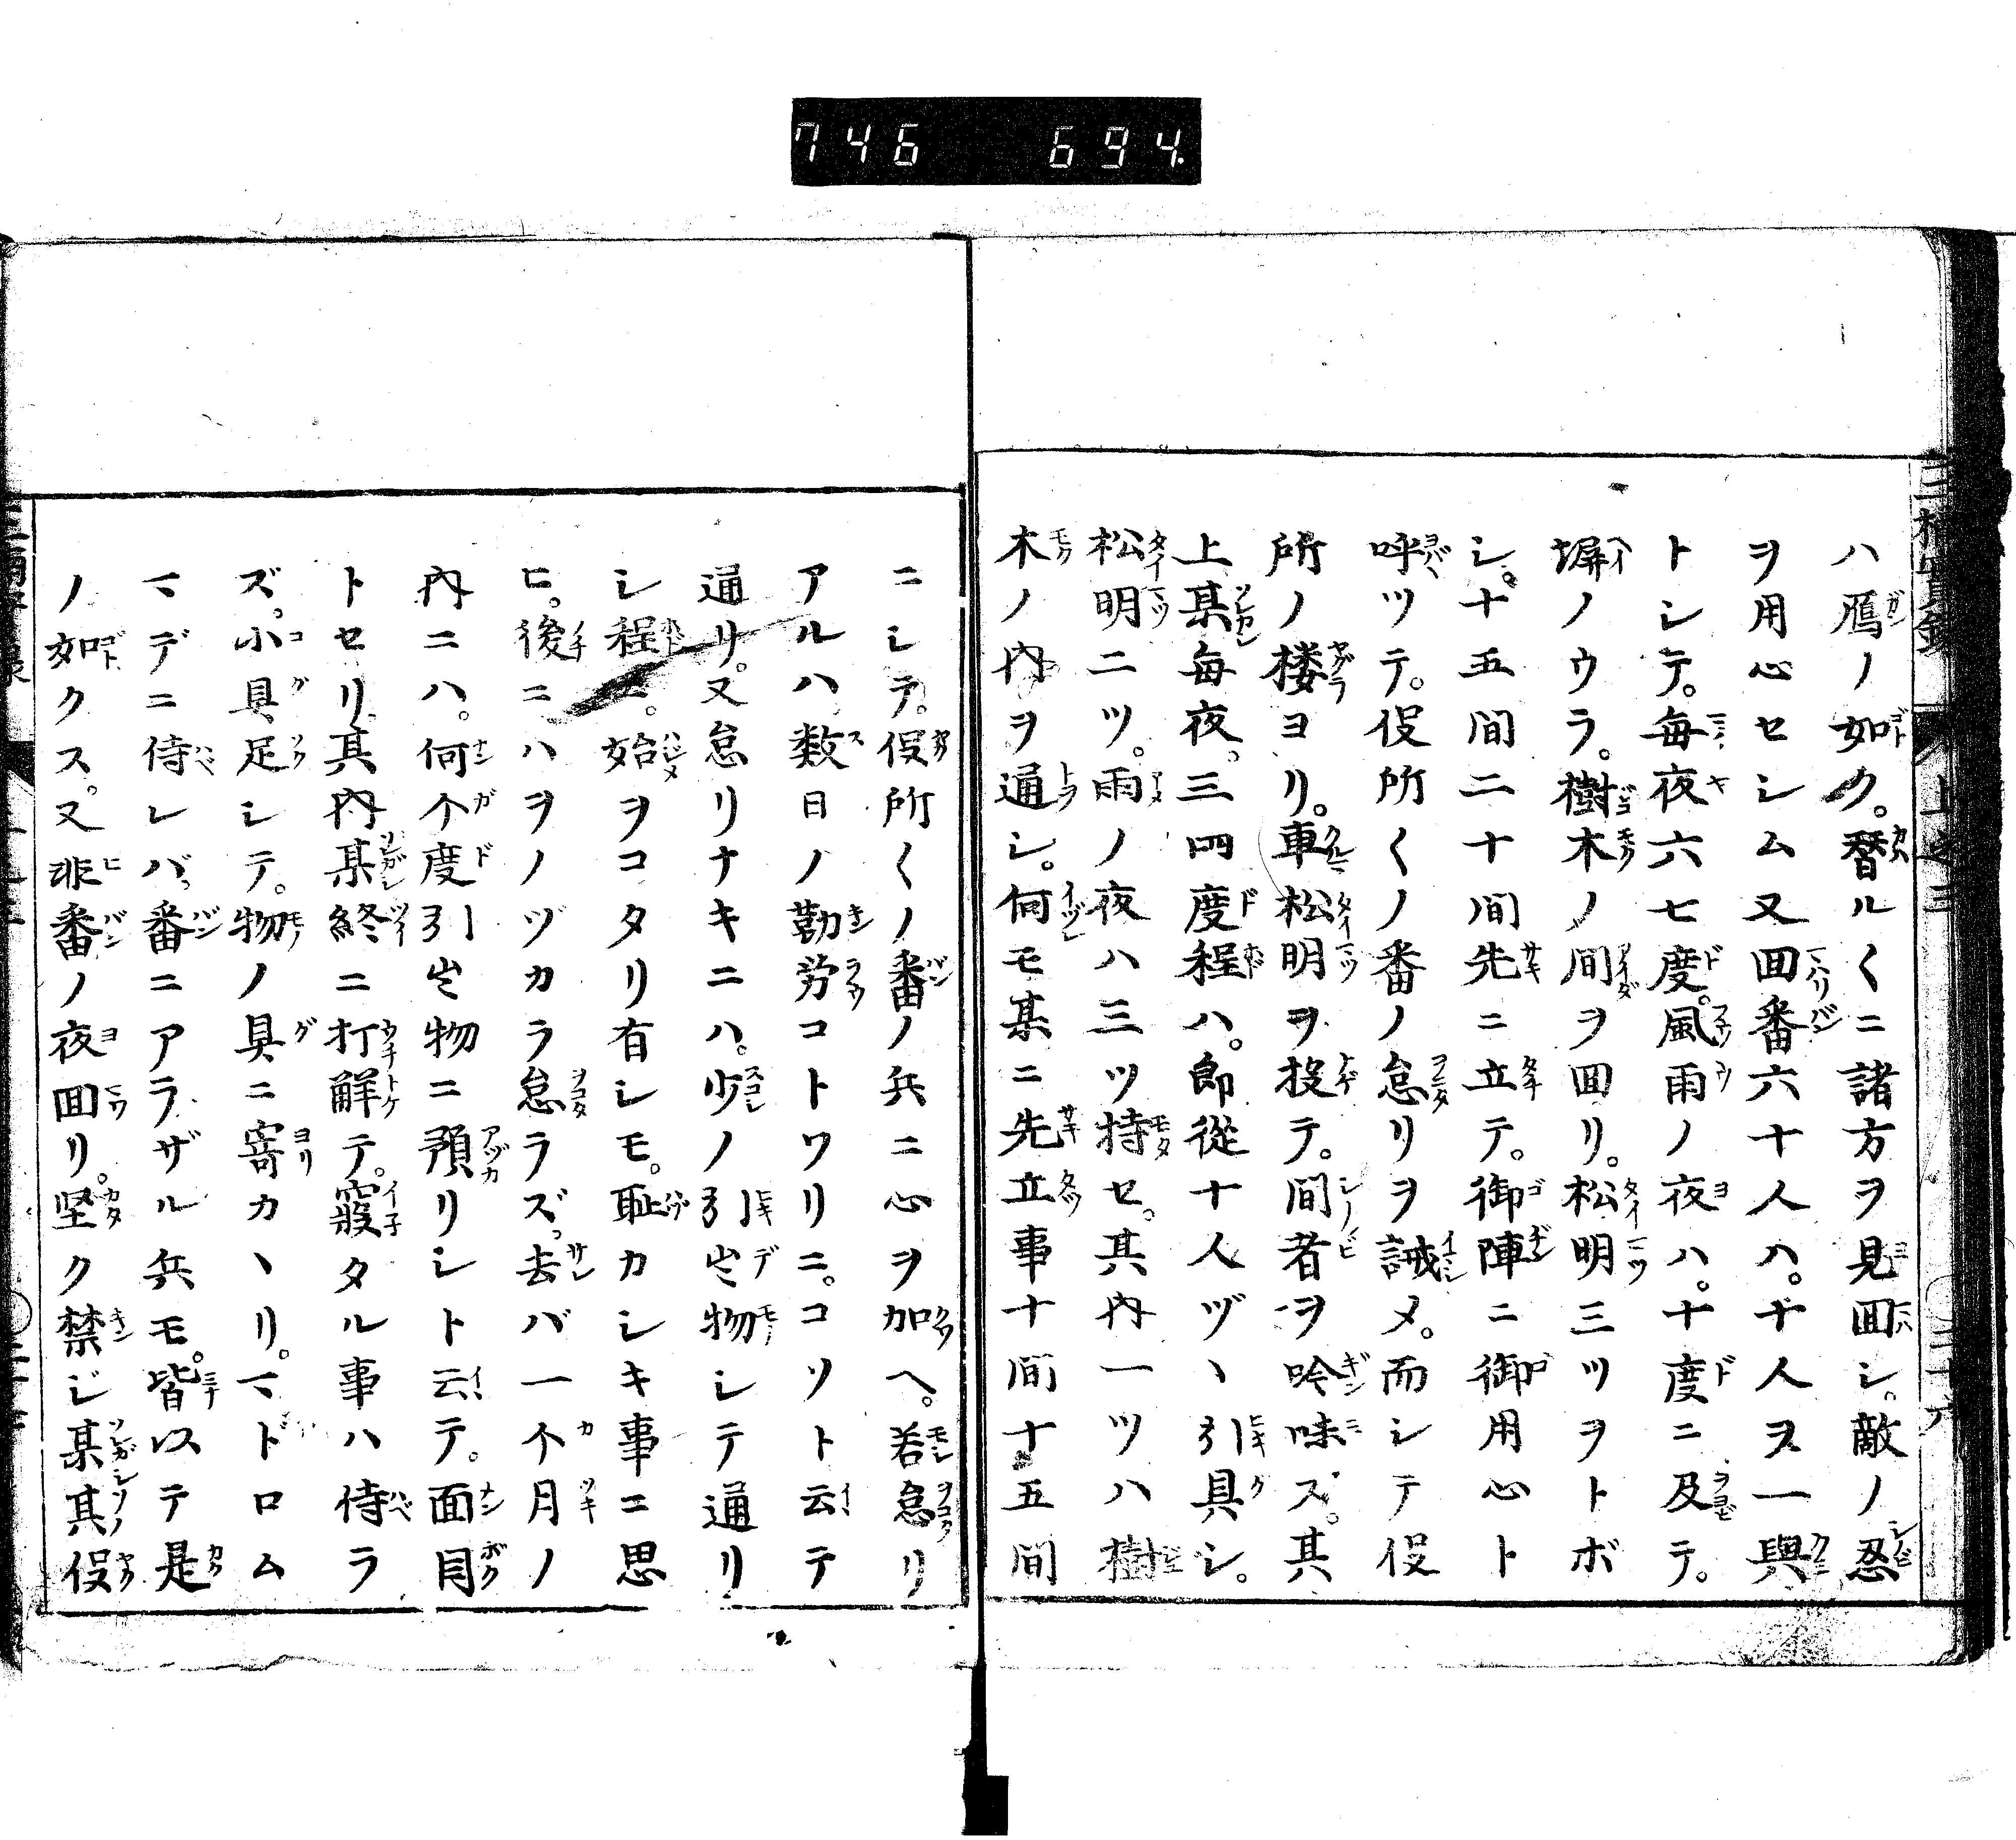 746 694.
ハ鴈ノ如ク。替ル〱ニ諸方ヲ見囬シ。敵ノ忍
ヲ用心セシム又囬番六十人ハ。十人ヲ一與
トシテ。毎夜六七度。風雨ノ夜ハ。十度ニ及テ。
塀ノウラ。樹木ノ間ヲ囬リ。松明三ツヲトボ
シ。十五間二十間先ニ立テ。御陣ニ御用心ト
呼ツテ。役所〱ノ番ノ怠リヲ誡メ。而シテ役
所ノ楼ヨリ。車松明ヲ投テ。間者ヲ吟味ス。其
上某毎夜。三四度程ハ。郎従十人ヅヽ引具シ。
松明二ツ。雨ノ夜ハ三ツ持セ。其内一ツハ樹
木ノ内ヲ通シ。何モ某ニ先立事十間十五間
ニシテ。役所〱ノ番ノ兵ニ心ヲ加ヘ。若怠リ
アルハ数日ノ勤労コトワリニ。コソト云テ
通リ。又怠リナキニハ。少ノ引出物シテ通リ
シ程ニ。始ヲコタリ有シモ。恥カシキ事ニ思
ヒ。後ニハヲノヅカラ怠ラズ。去バ一个月ノ
内ニハ。何个度引出物ニ預リシト云テ。面目
トセリ。其内某終ニ打解テ。寢タル事ハ侍ラ
ズ。小具足シテ。物ノ具ニ寄カヽリ。マドロム
マデニ侍レバ。番ニアラザル兵モ。皆以テ是
ノ如クス。又非番ノ夜囬リ。堅ク禁ジ某其役